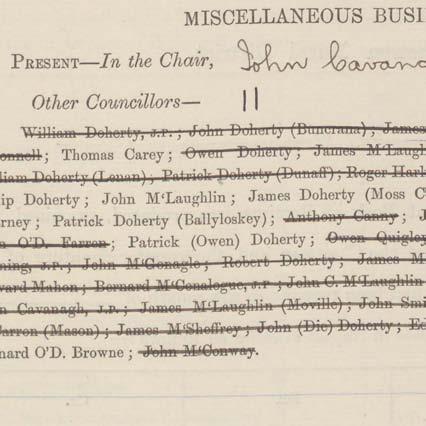 MISCELLANEOUS BUSI
PRESENT—In the Chair, John Cavana
Other Councillors— 11
William Doherty, J.P.; John Doherty (Buncrana); James
onnell; Thomas Carey; Owen Doherty; James M'Laugh
liam Doherty (Lenan); Patrick Doherty (Dunaff); Roger Hark
lip Doherty; John M'Laughlin; James Doherty (Moss C
rney; Patrick Doherty (Ballyloskey); Anthony Canny; J
n O'D. Farron; Patrick (Owen) Doherty; Owen Quigley
ning, J.P.; John M'Gonagle; Robert Doherty; James M
ward Mahon; Bernard M'Conalogue, J.P.; John C. M'Laughlin
n Cavanagh, J.P.; James M'Laughlin (Moville); John Smi
Farron (Mason); James M'Sheffrey; John (Die) Doherty; Ed
nard O'D. Browne; John M'Conway.